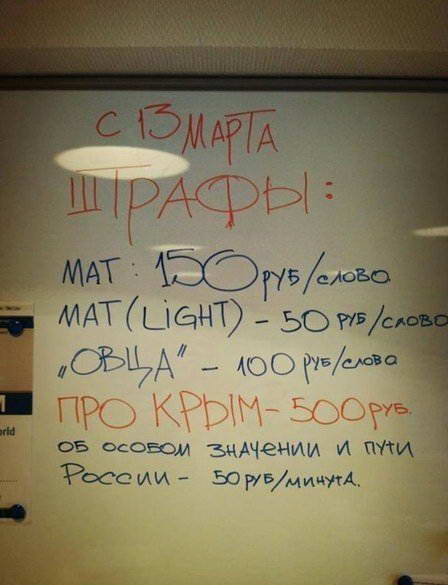 С 13 МАРТА
ШТРАФЫ:
МАТ: 150 РУБ/СЛОВО
МАТ (LIGHT) - 50 РУБ/СЛОВО
„ОВЦА" - 100 РУБ/СЛОВО
ПРО КРЫМ - 500 РУБ.
ОБ ОСОБОМ ЗНАЧЕНИИ И ПУТИ
РОССИИ - 50 РУБ/МИНУТА.
rld